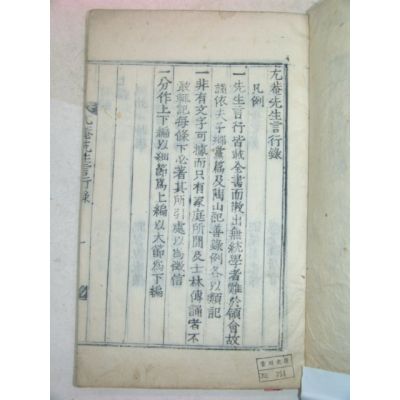 尤菴先生言行錄
凡例
一先生言行皆載全書而散出無統學者難於領會故
謹依夫子鄕黨篇及陶山記善錄例各以類記
一非有文字可據而只有家庭所聞及士林傳誦者不
敢輒記每條下必著其所引處以爲徵信
一分作上下編以細節爲上編以大節爲下編
尤菴先生言行錄